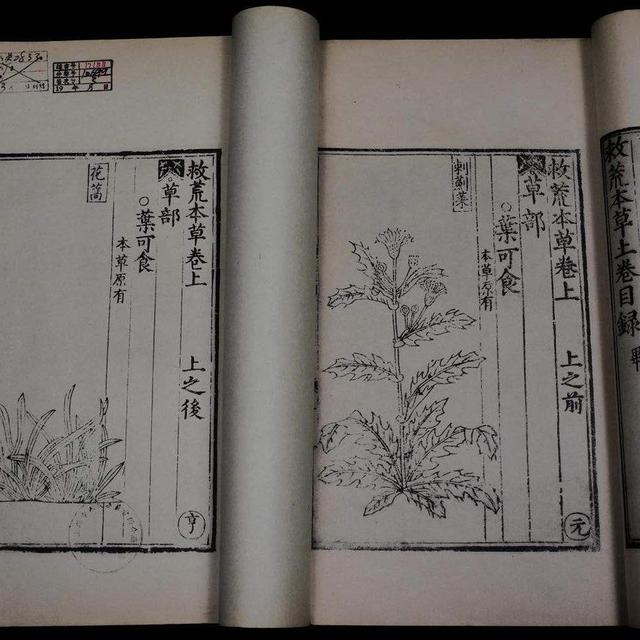 救荒本草上卷目録
救荒本草卷上　上之前　元
草部
○葉可食
本草原有
刺薊菜
救荒本草卷上　上之後　亨
草部
○葉可食
本草原有
花蒿